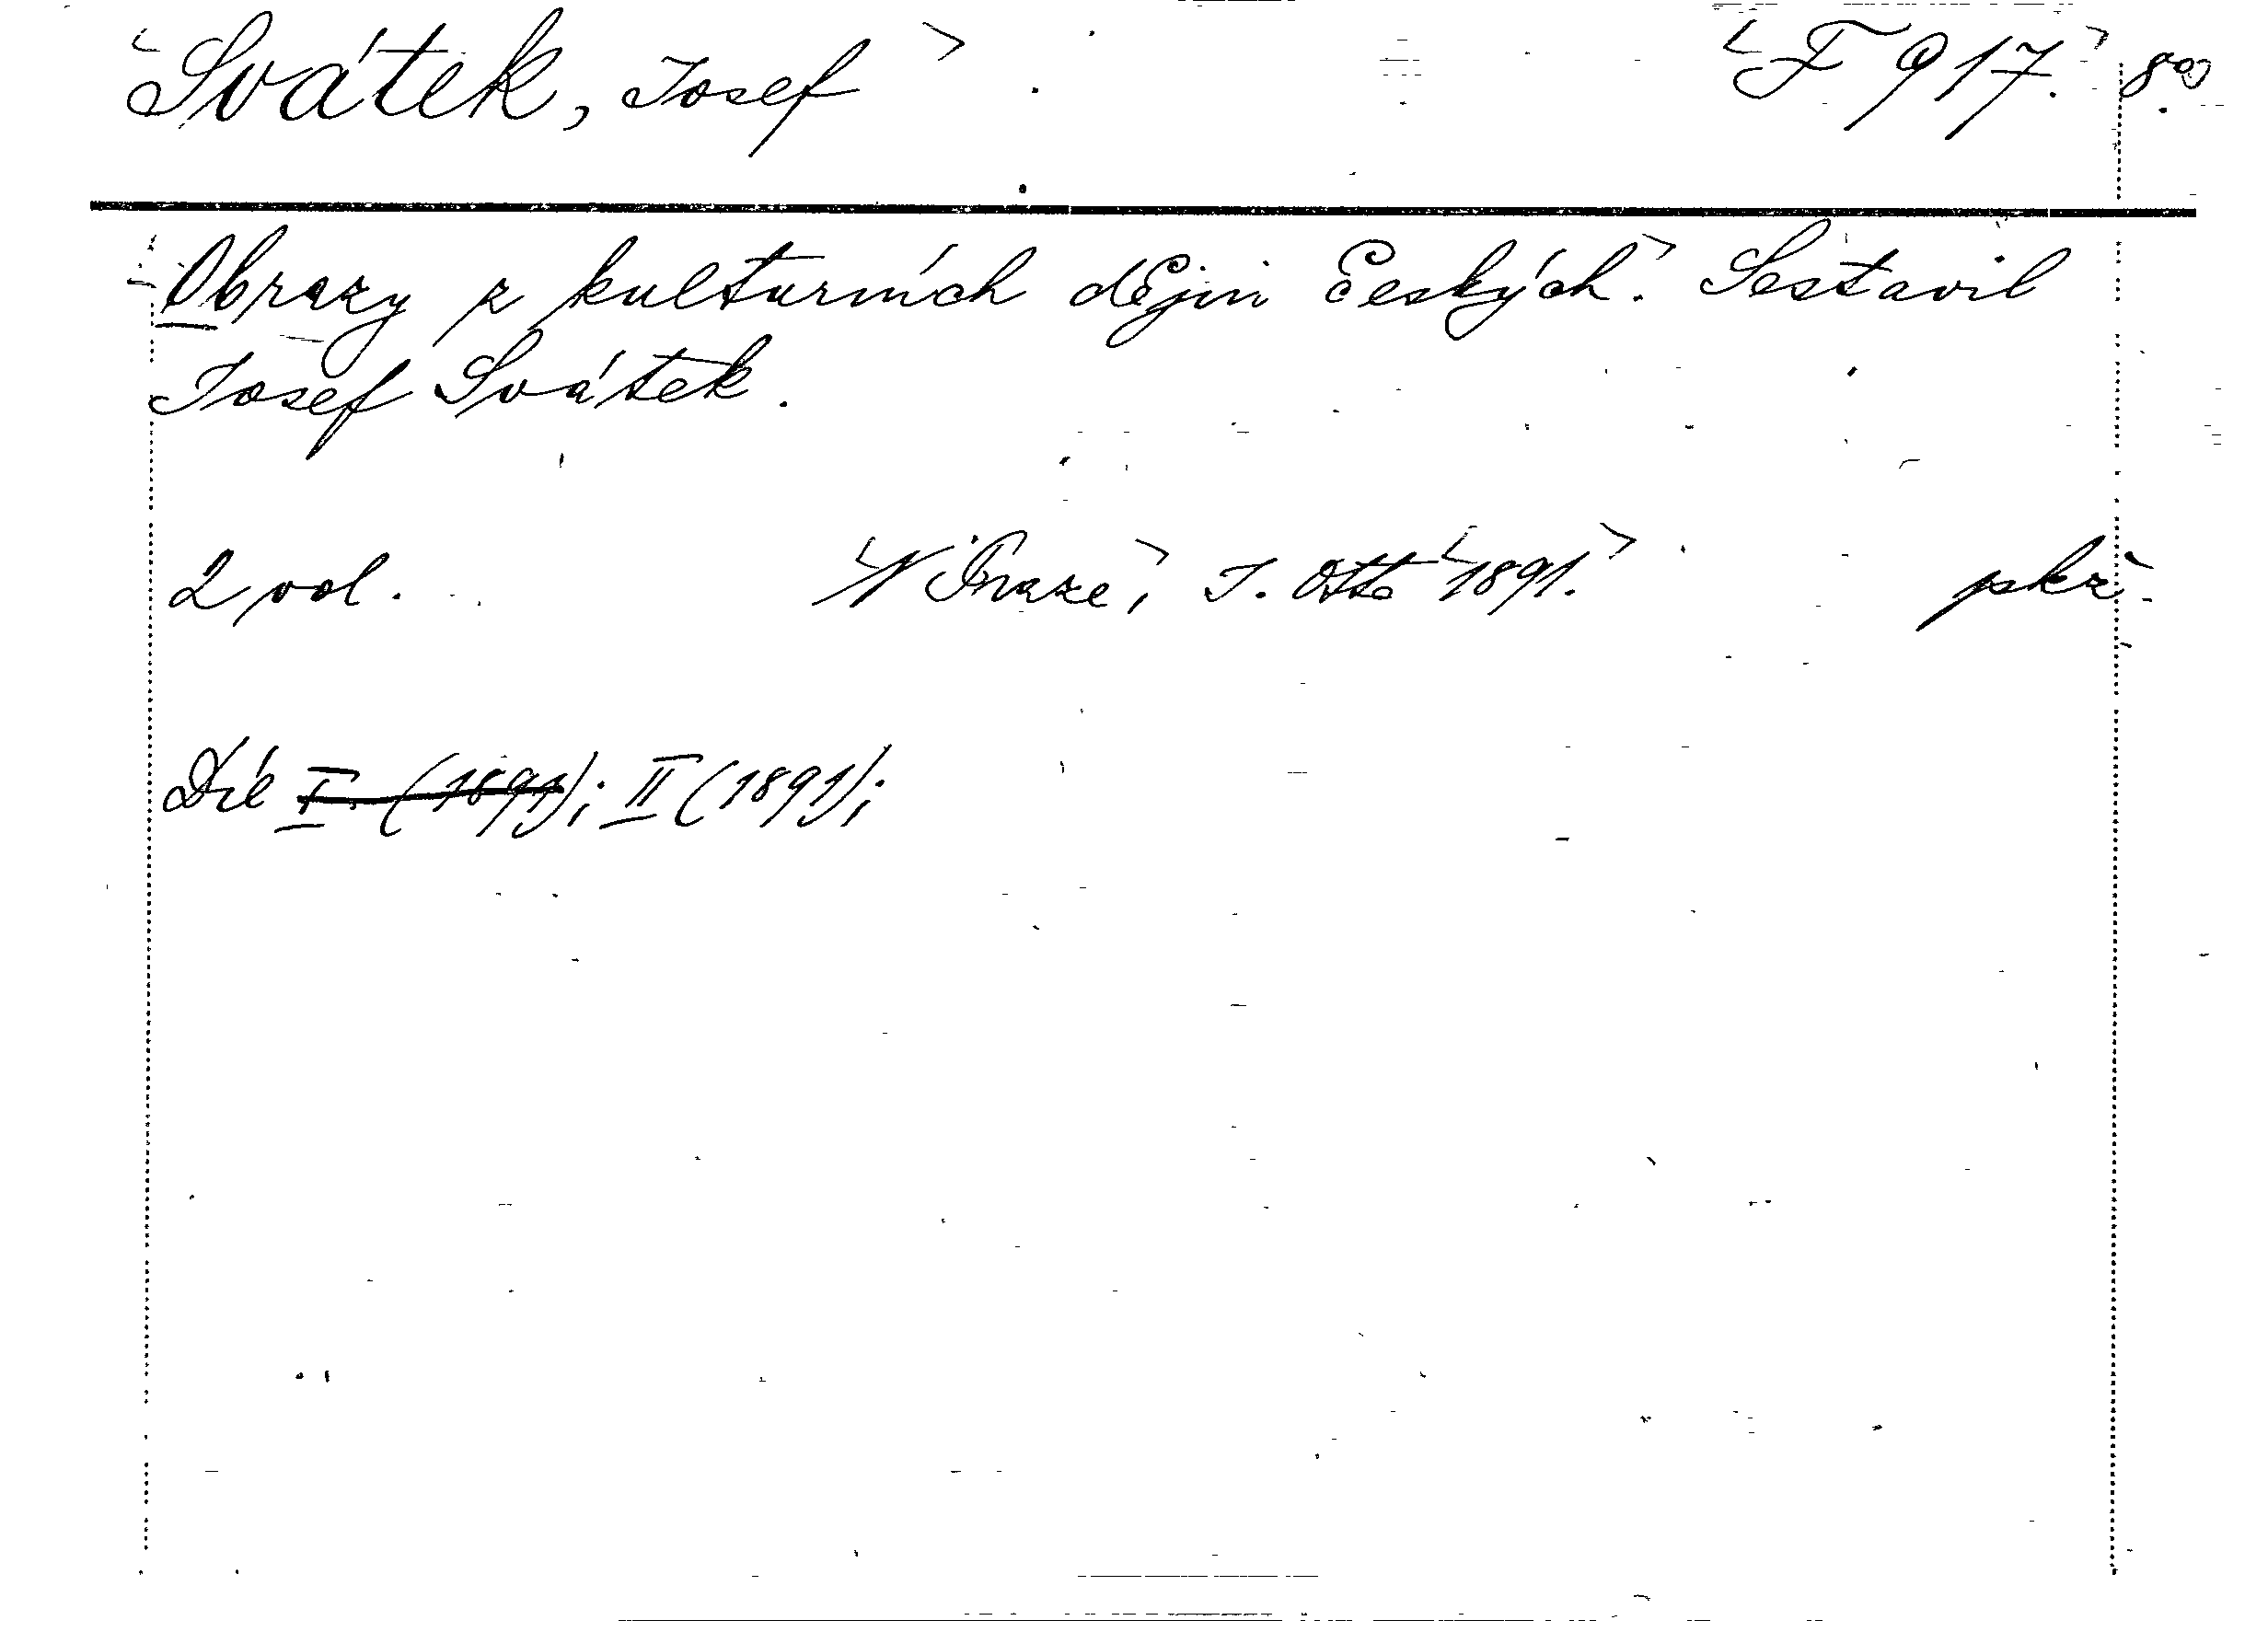 <Svátek, Josef> <F 917.> 8°
<Obrazy z kulturních dějin českých.> Sestavil
Josef Svátek.
2 vol. <V Praze>, J. Otto <1891.> pkž.
Díl I. (1891); II (1891);